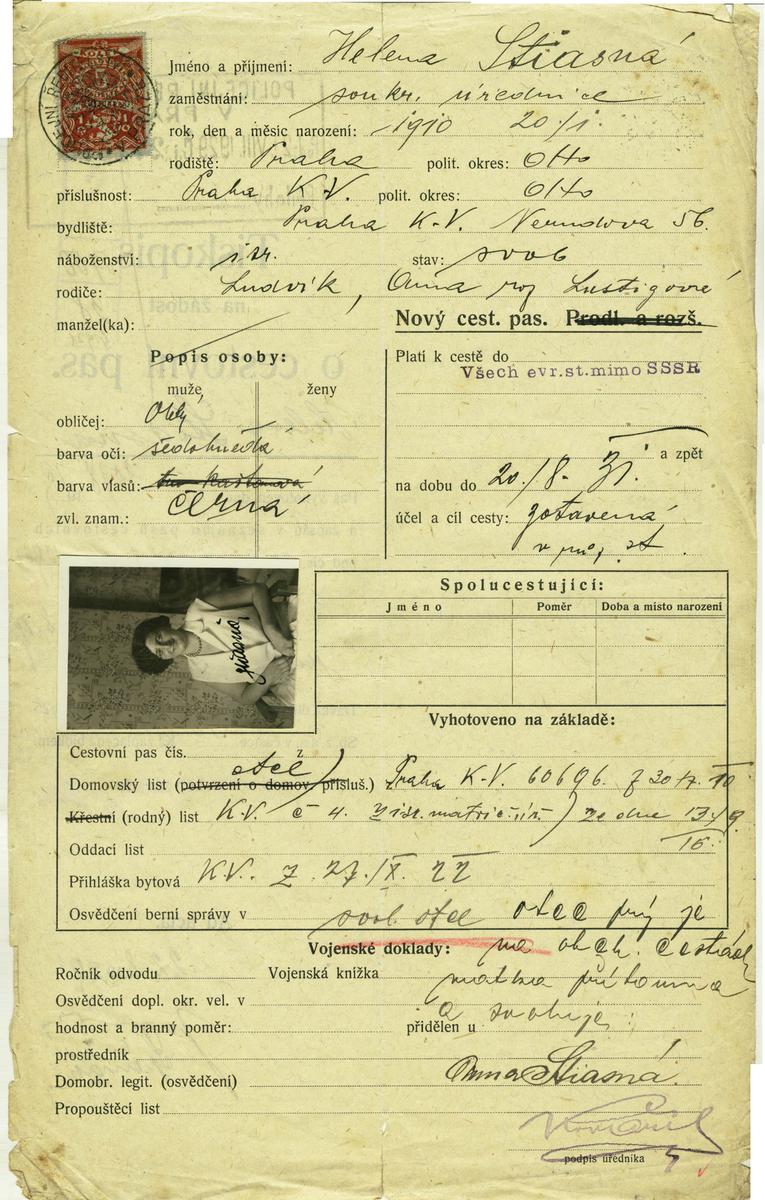 Jméno a příjmení: Helena Stiasná
zaměstnání: soukr. úřednice
rok, den a měsíc narození: 1910 20/1.
rodiště: Praha polit. okres: Otto
příslušnost: Praha K-V. polit. okres: Otto
bydliště: Praha K-V. Nerudova 56.
náboženství: isr. stav: svob
rodiče: Ludvík, Anna roz Lustigová
manžel(ka):
Nový cest. pas. Prodl. a rozš.
Popis osoby:
muže, ženy
obličej: Oblý
barva očí: šedohnědá
barva vlasů: kaštanová
černá
zvl. znam.:
Platí k cestě do
Všech evr.st.mimo SSSR
a zpět
na dobu do 20/8. 31.
účel a cíl cesty: zotavená
Stiasná
Spolucestující:
Jméno Poměr Doba a místo narození
Vyhotoveno na základě:
Cestovní pas čís.
otců
Domovský list (potvrzení o domov. přísluš.) Praha K-V. 60696. z 30
Křestní (rodný) list K.V. č 4. ze dne 13/9
Oddací list 16.
Přihláška bytová K.V. z 27/IX. 22
Osvědčení berní správy v svob. otec otec prý je
Vojenské doklady: na obch. cestách
Ročník odvodu Vojenská knížka matka přítomna
Osvědčení dopl. okr. vel. v a svoluje:
hodnost a branný poměr: přidělen u
prostředník
Domobr. legit. (osvědčení) Anna Stiasná.
Propouštěcí list
podpis úředníka